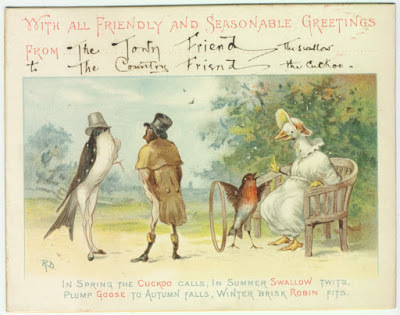 WITH ALL FRIENDLY AND SEASONABLE GREETINGS
FROM The Town Friend the swallow
to The Country Friend the Cuckoo.
RD
IN SPRING THE CUCKOO CALLS, IN SUMMER SWALLOW TWITS,
PLUMP GOOSE TO AUTUMN FALLS, WINTER BRISK ROBIN FITS.